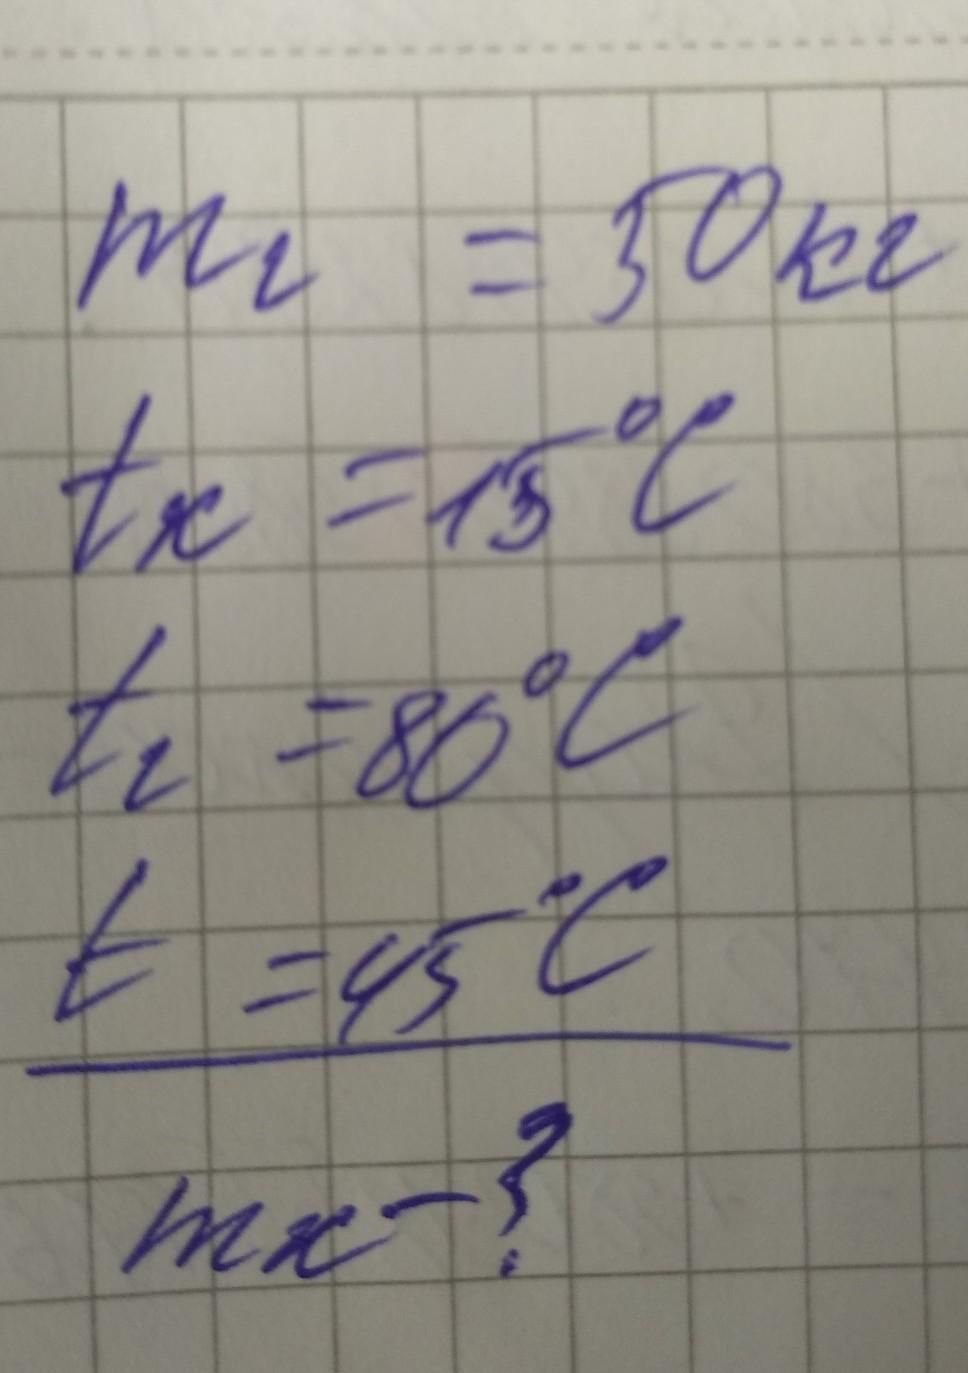 mг = 50кг
tх = 15°C
tг = 80°C
t = 45°C
mх - ?